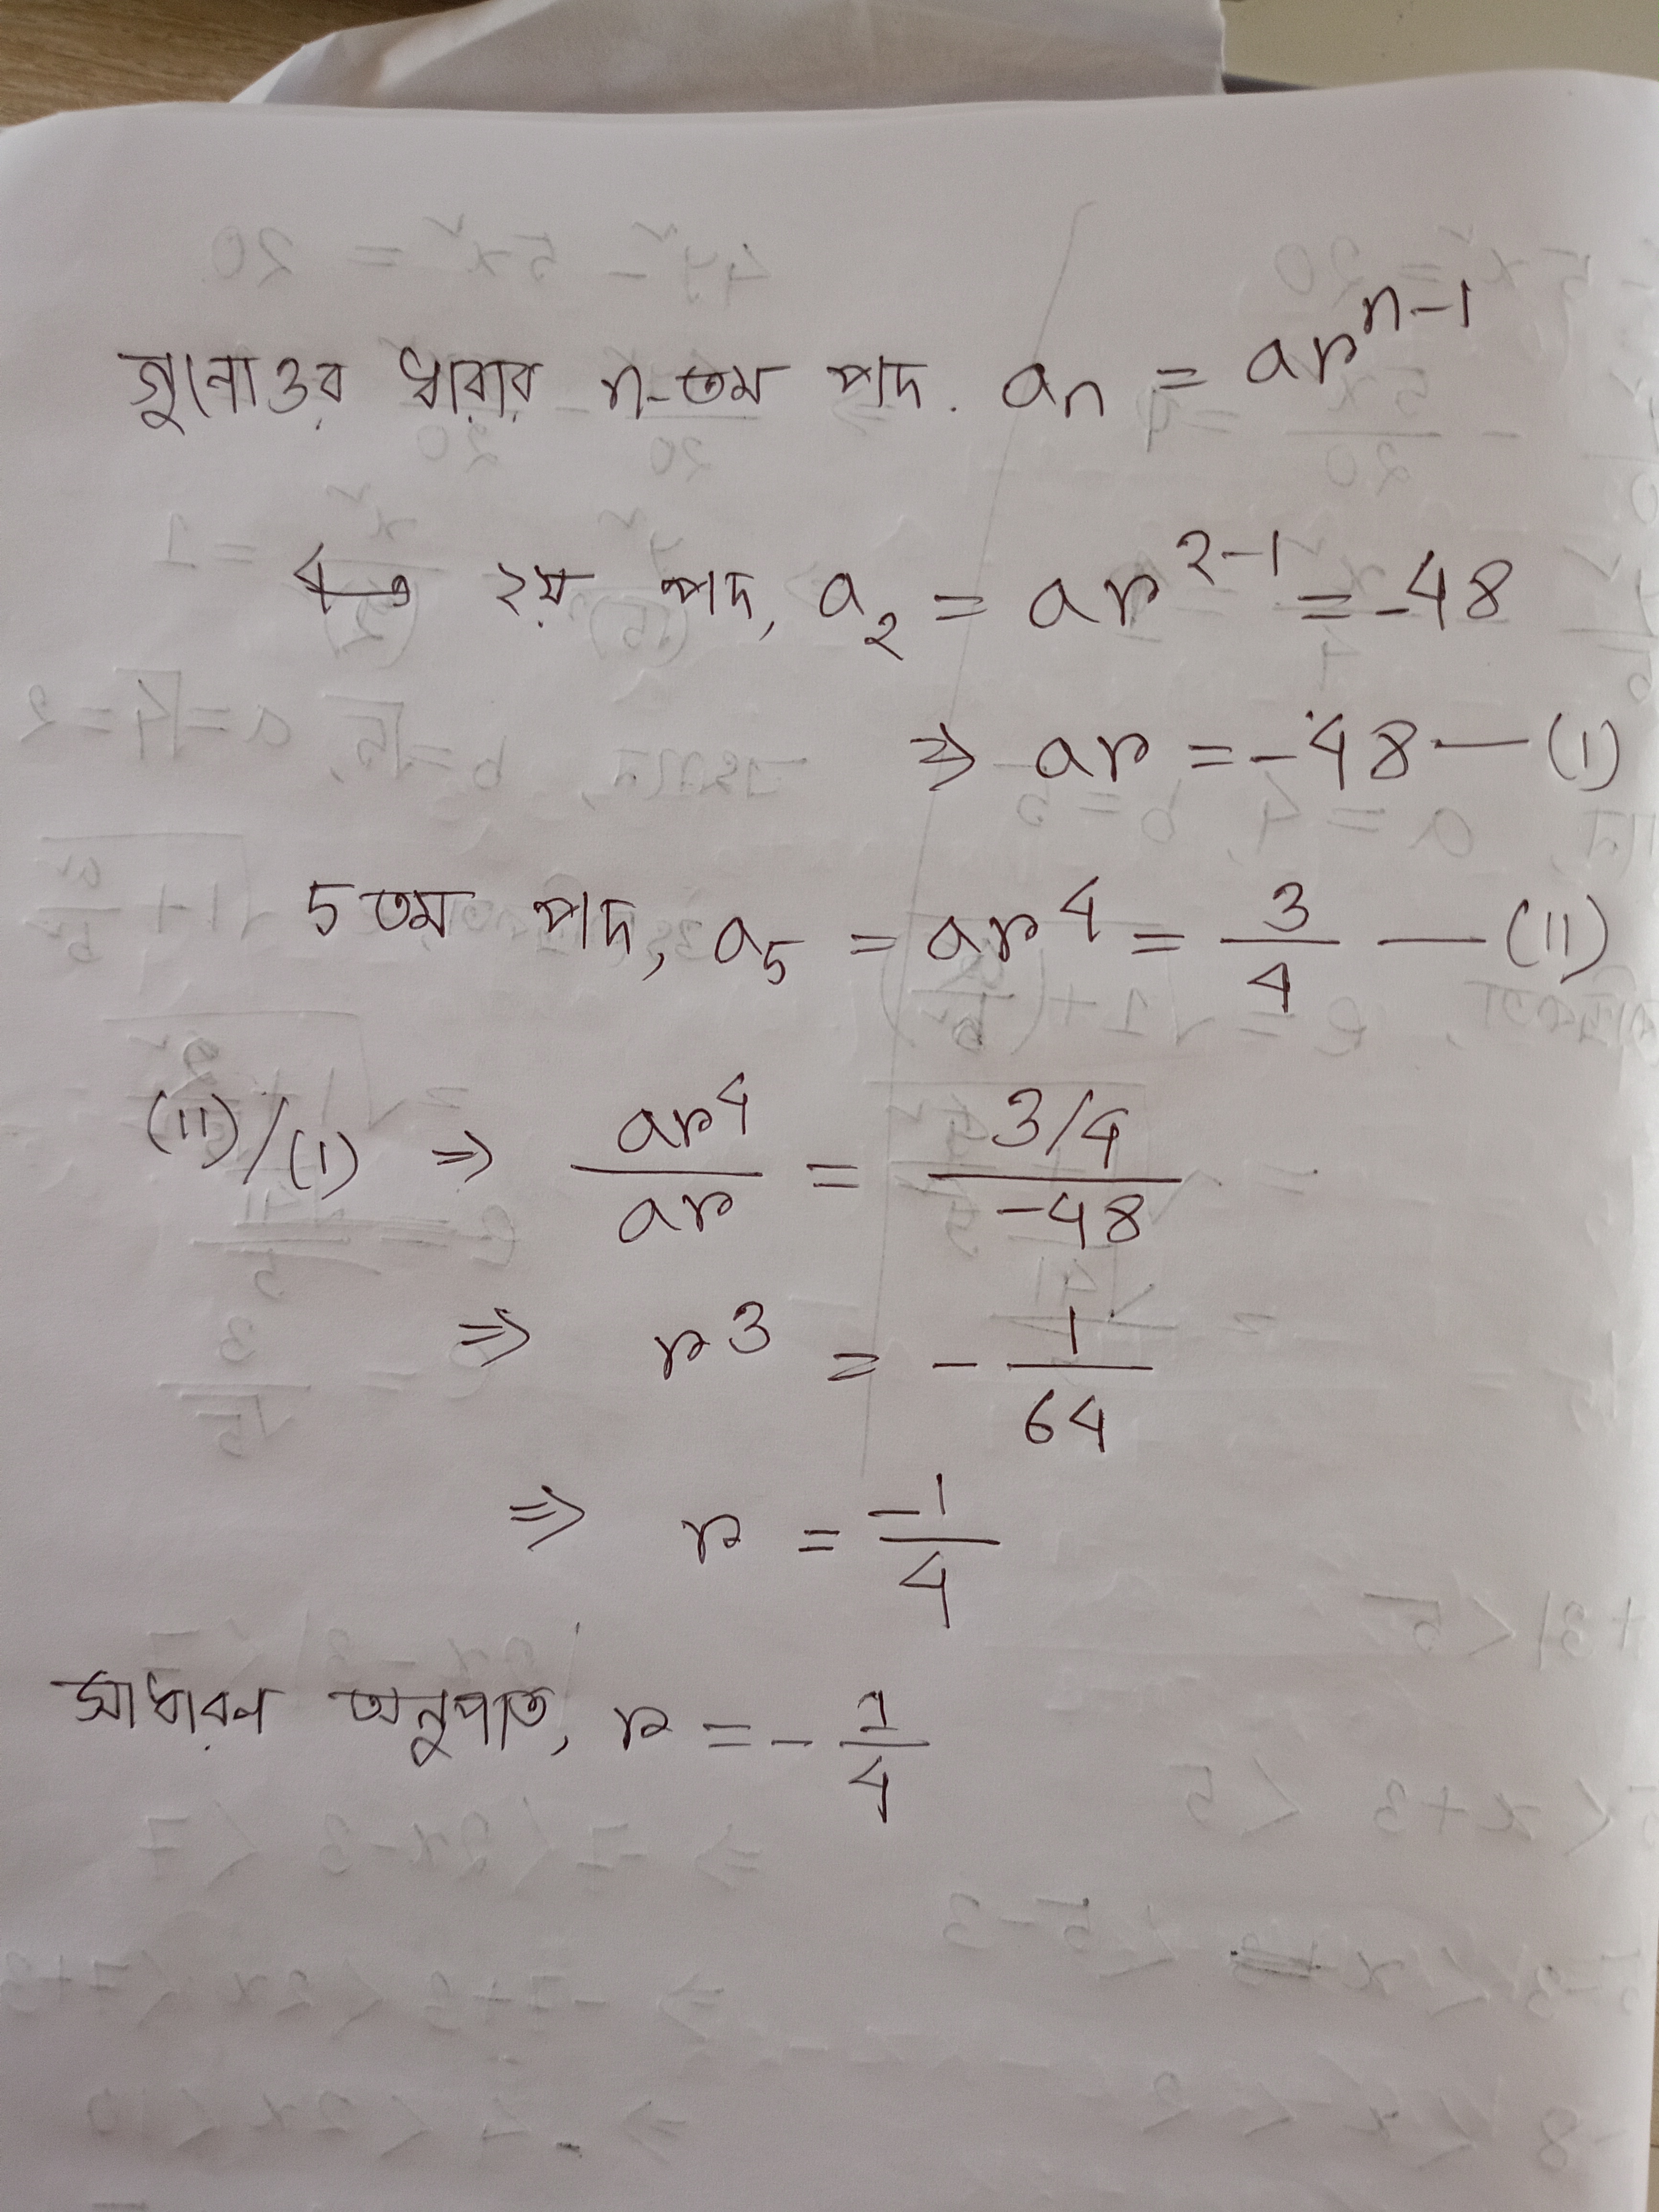 গুনোত্তর ধারার n-তম পদ. aₙ = arⁿ⁻¹
২য় পদ, a₂ = ar²⁻¹ = -48
⇒ ar = -48 — (I)
5তম পদ, a₅ = ar⁴ = 3/4 — (II)
(II)/(I) ⇒ ar⁴/ar = (3/4)/-48
⇒ r³ = - 1/64
⇒ r = -1/4
সাধারণ অনুপাত, r = - 1/4